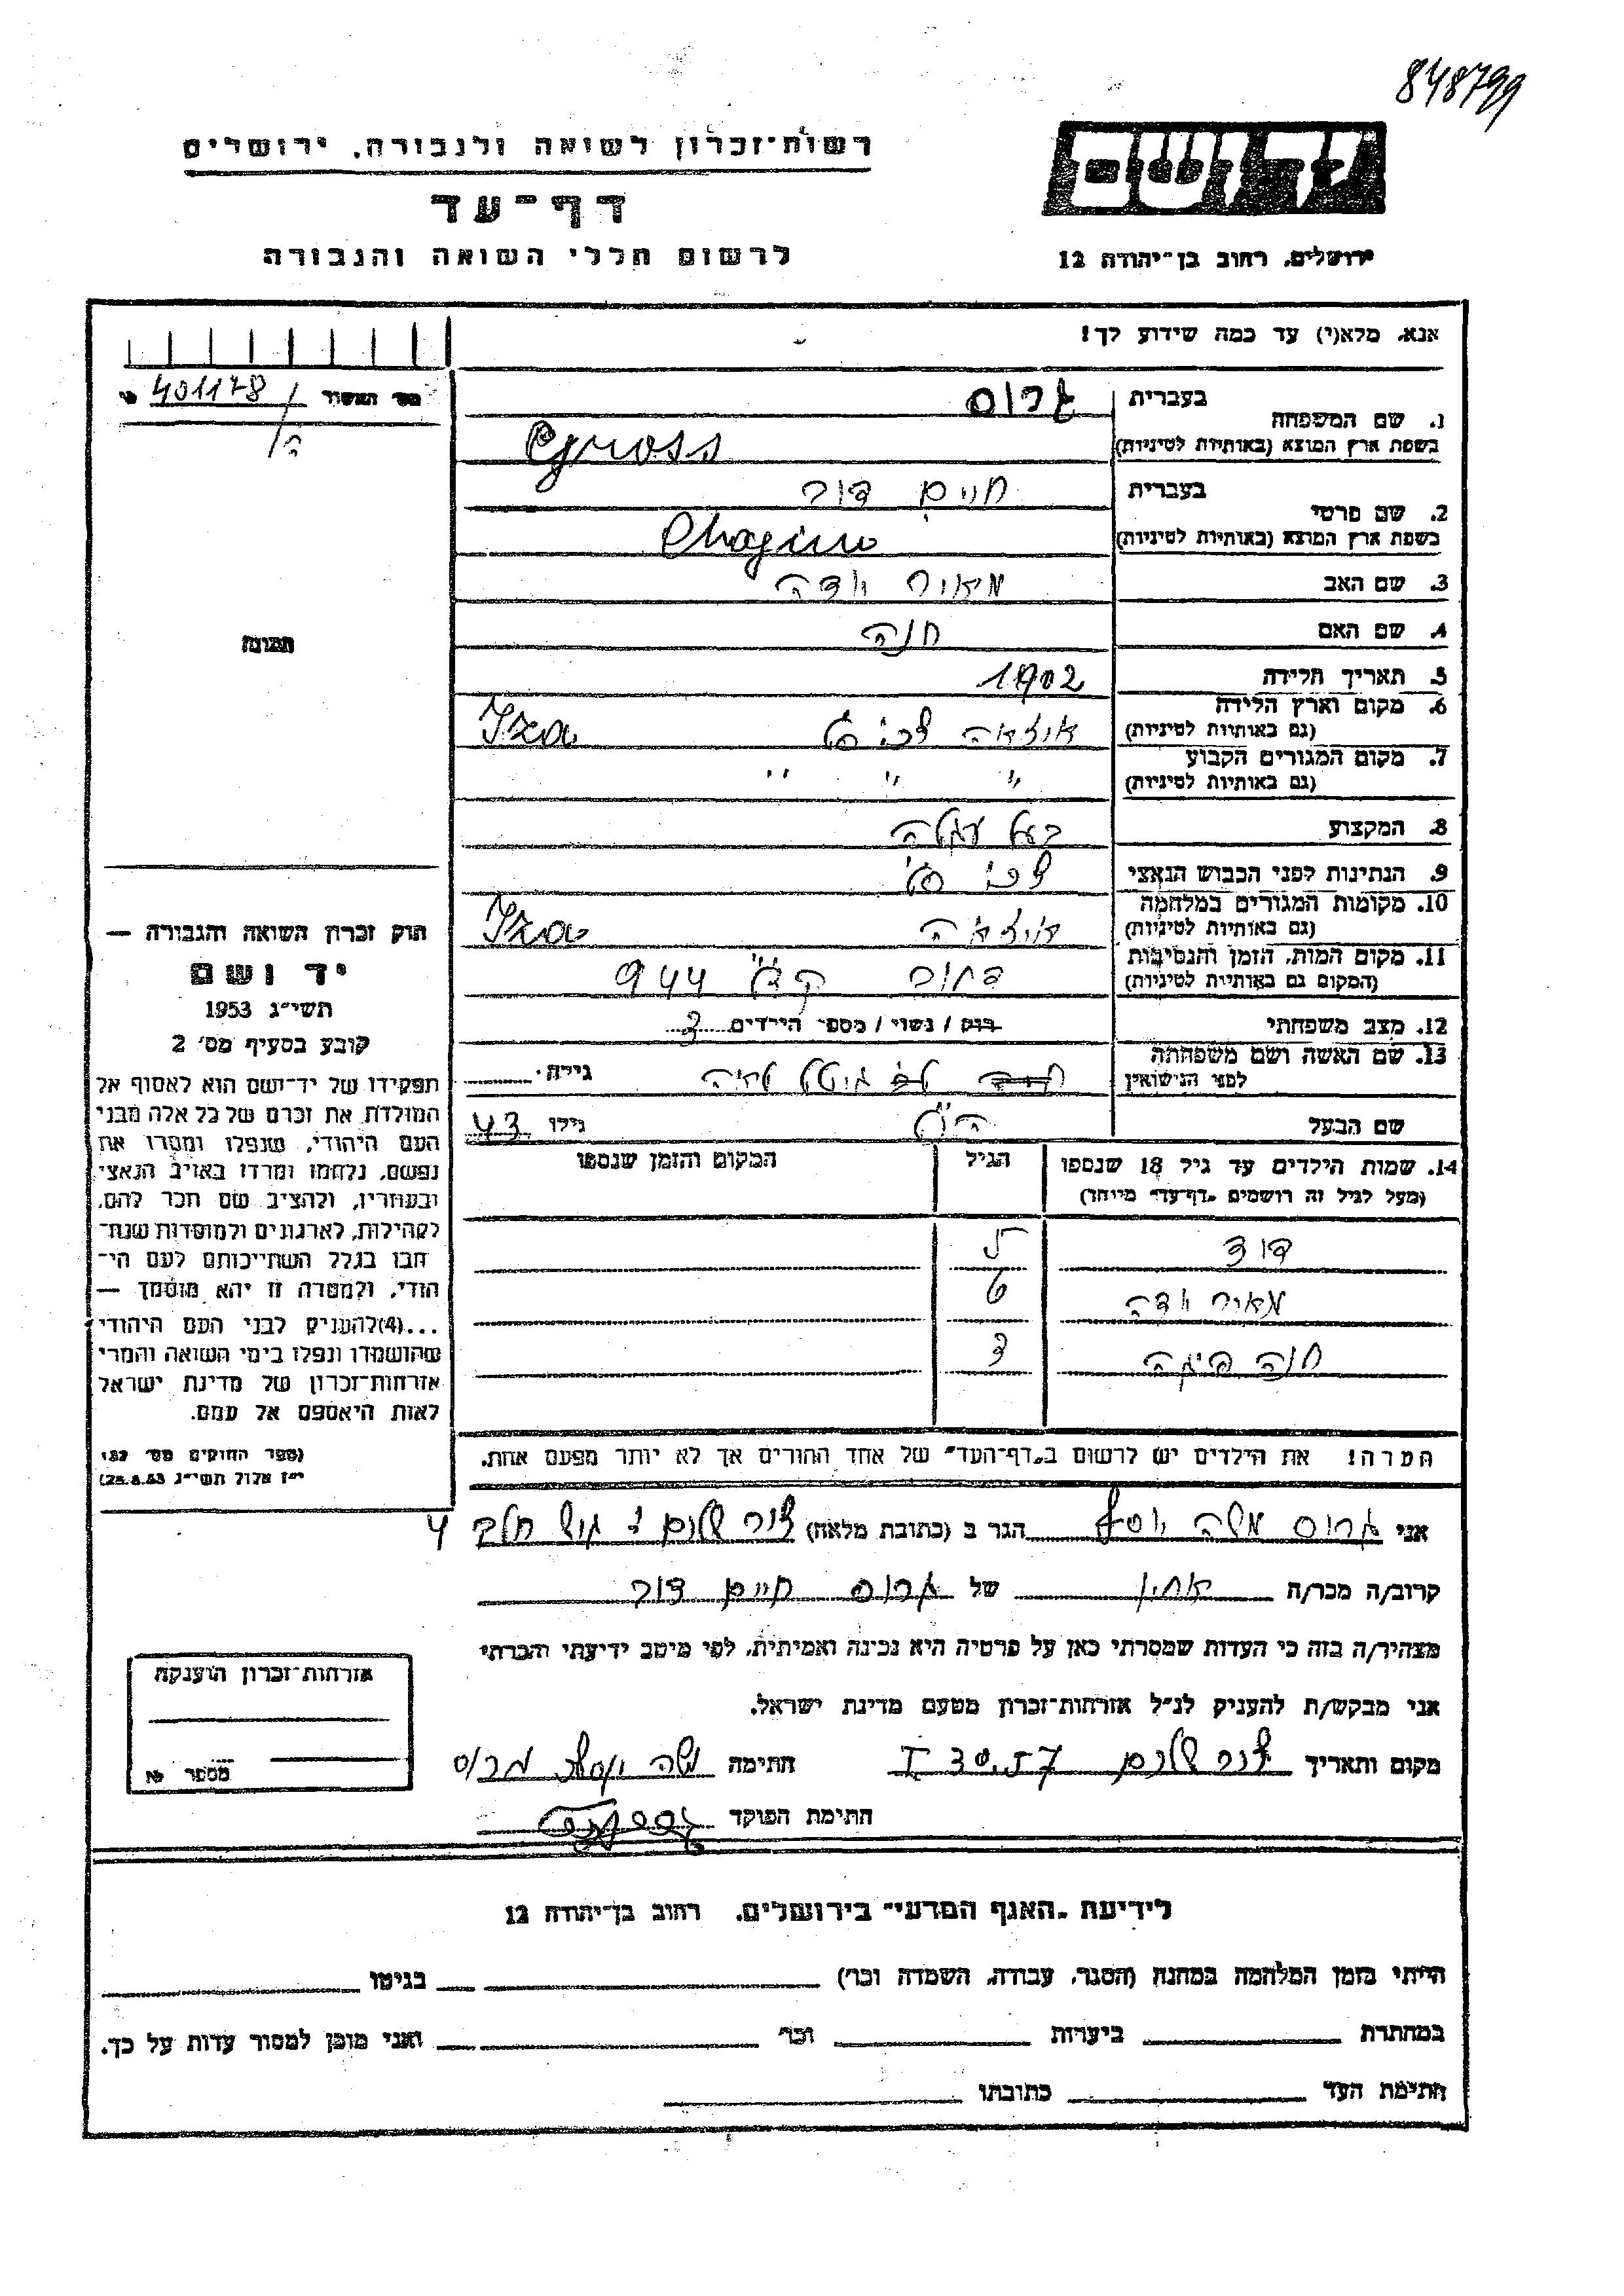 848799
רשות־זכרון לשואה ולגבורה, ירושלים
דף־עד
לרשום חללי השואה והגבורה
יד ושם
ירושלים, רחוב בן־יהודה 12
אנא, מלא(י) עד כמה שידוע לך!
401178
1. שם המשפחה
בעברית גרוס
בשפת ארץ המוצא (באותיות לטיניות) Gross
2. שם פרטי
בעברית חיים דוב
בשפת ארץ המוצא (באותיות לטיניות)
3. שם האב מאיר יודה
4. שם האם חנה
5. תאריך הלידה 1902
6. מקום וארץ הלידה
(גם באותיות לטיניות) איזאה Iza
7. מקום המגורים הקבוע
(גם באותיות לטיניות) " " "
8. המקצוע בעל עגלה
9. הנתינות לפני הכבוש הנאצי
10. מקומות המגורים במלחמה
(גם באותיות לטיניות) איזאה Iza
11. מקום המות, הזמן והנסיבות
(המקום גם באותיות לטיניות) 944
12. מצב משפחתי רווק / נשוי / מספר הילדים 3
13. שם האשה ושם משפחתה
לפני הנישואין גילה
שם הבעל גילו 43
14. שמות הילדים עד גיל 18 שנספו הגיל המקום והזמן שנספו
(מעל לגיל זה רושמים "דף־עד" מיוחד)
דוד 5
מאיר יודה 6
חנה 3
הערה! את הילדים יש לרשום ב"דף־העד" של אחד ההורים אך לא יותר מפעם אחת.
תמונה
חוק זכרון השואה והגבורה —
יד ושם
תשי"ג 1953
קובע בסעיף מס' 2
תפקידו של יד־ושם הוא לאסוף אל
המולדת את זכרם של כל אלה מבני
העם היהודי, שנפלו ומסרו את
נפשם, נלחמו ומרדו באויב הנאצי
ובעוזריו, ולהציב שם וזכר להם,
לקהילות, לארגונים ולמוסדות שנח־
רבו בגלל השתייכותם לעם הי־
הודי, ולמטרה זו יהא מוסמך —
...(4) להעניק לבני העם היהודי
שהושמדו ונפלו בימי השואה והמרי
אזרחות־זכרון של מדינת ישראל
לאות היאספם אל עמם.
(ספר החוקים מס' 132
י"ז אלול תשי"ג 28.8.53)
אני גרוס משה יוסף הגר ב (כתובת מלאה)
קרוב/ה מכר/ה אחין של גרוס חיים דוב
מצהיר/ה בזה כי העדות שמסרתי כאן על פרטיה היא נכונה ואמיתית, לפי מיטב ידיעתי והכרתי
אני מבקש/ת להעניק לנ"ל אזרחות־זכרון מטעם מדינת ישראל.
מקום ותאריך חתימה משה יוסף גרוס
חתימת הפוקד
אזרחות־זכרון הוענקה
מספר №
לידיעת "האגף המדעי" בירושלים, רחוב בן־יהודה 12
הייתי בזמן המלחמה במחנה (הסגר, עבודה, השמדה וכו') בגיטו
במחתרת ביערות וכו' ואני מוכן למסור עדות על כך.
חתימת העד כתובתו